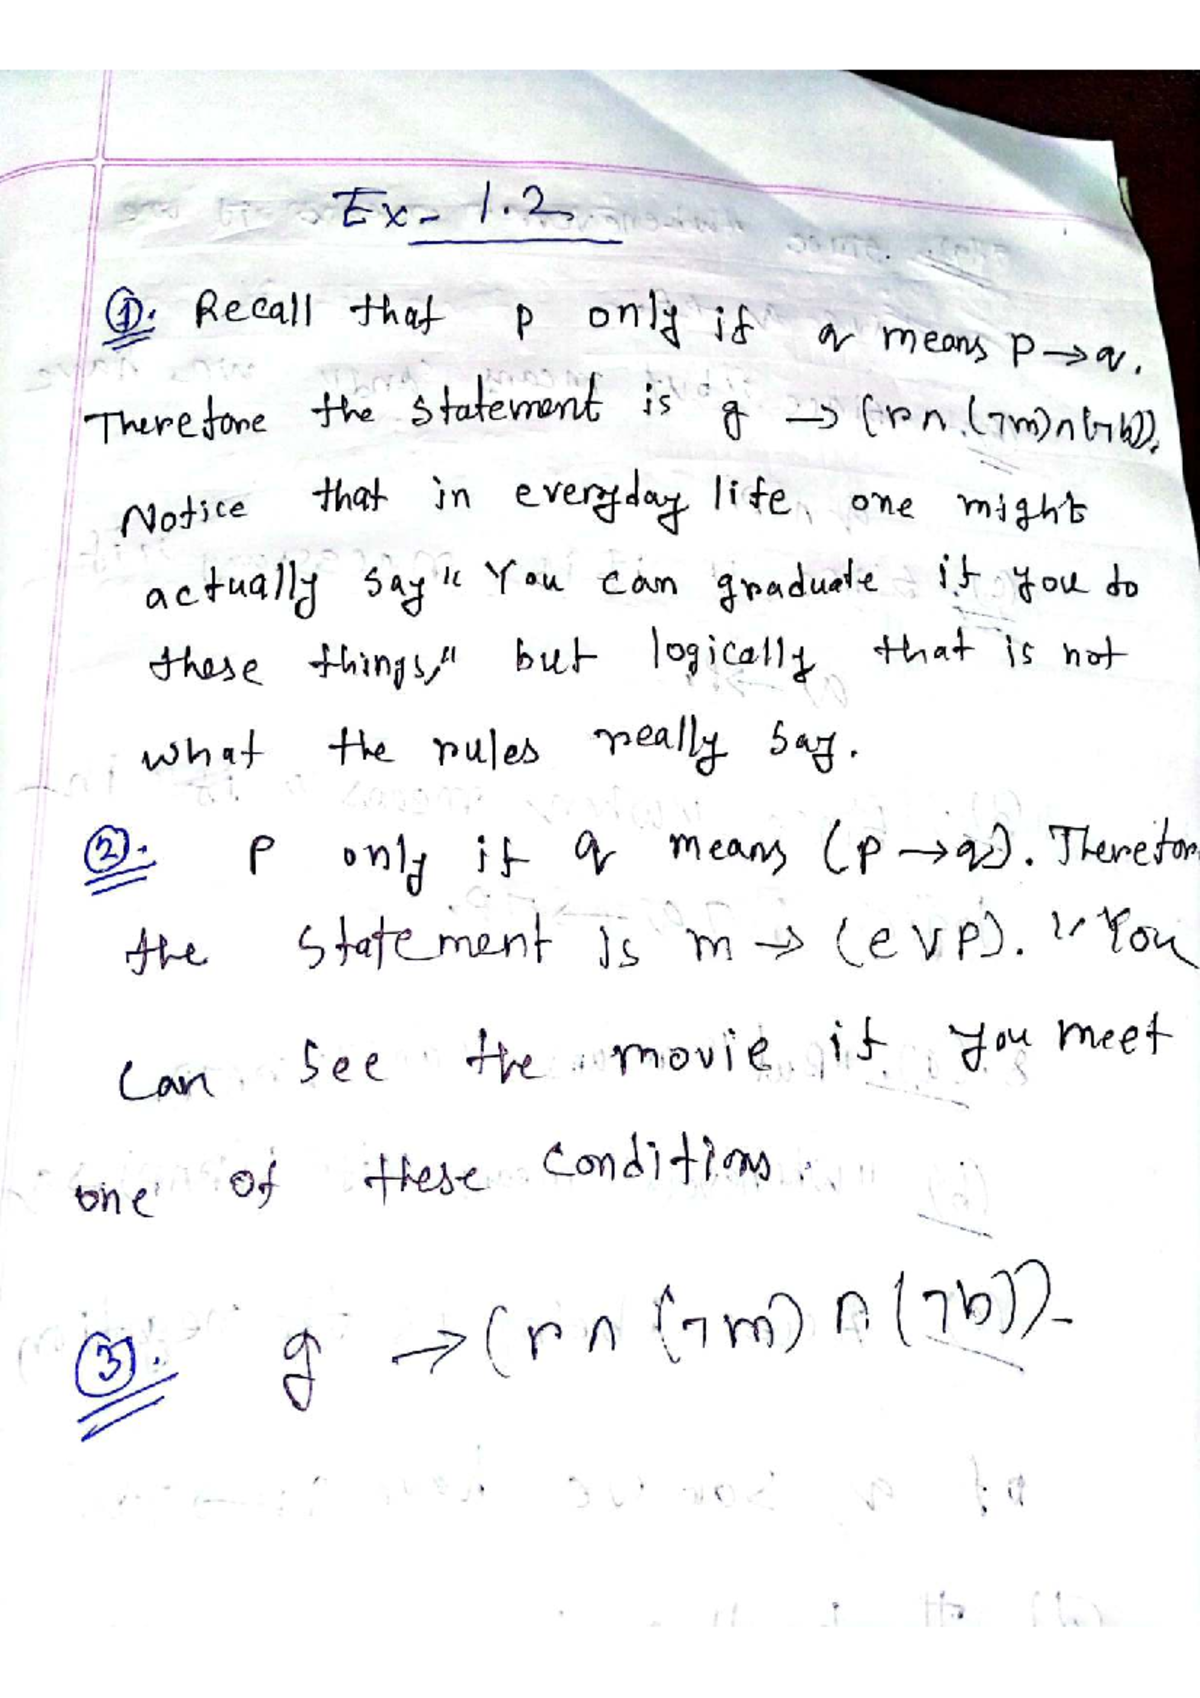 Ex- 1.2
①. Recall that p only if q means p→q.
Therefore the statement is g → (r∧(¬m)∧(¬b)).
Notice that in everyday life, one might
actually say "You can graduate if you do
these things," but logically that is not
what the rules really say.
②. P only if q means (p→q). Therefor
the statement is m → (e∨p). "You
can see the movie if you meet
one of these conditions.
③. g → (r∧(¬m)∧(¬b)).